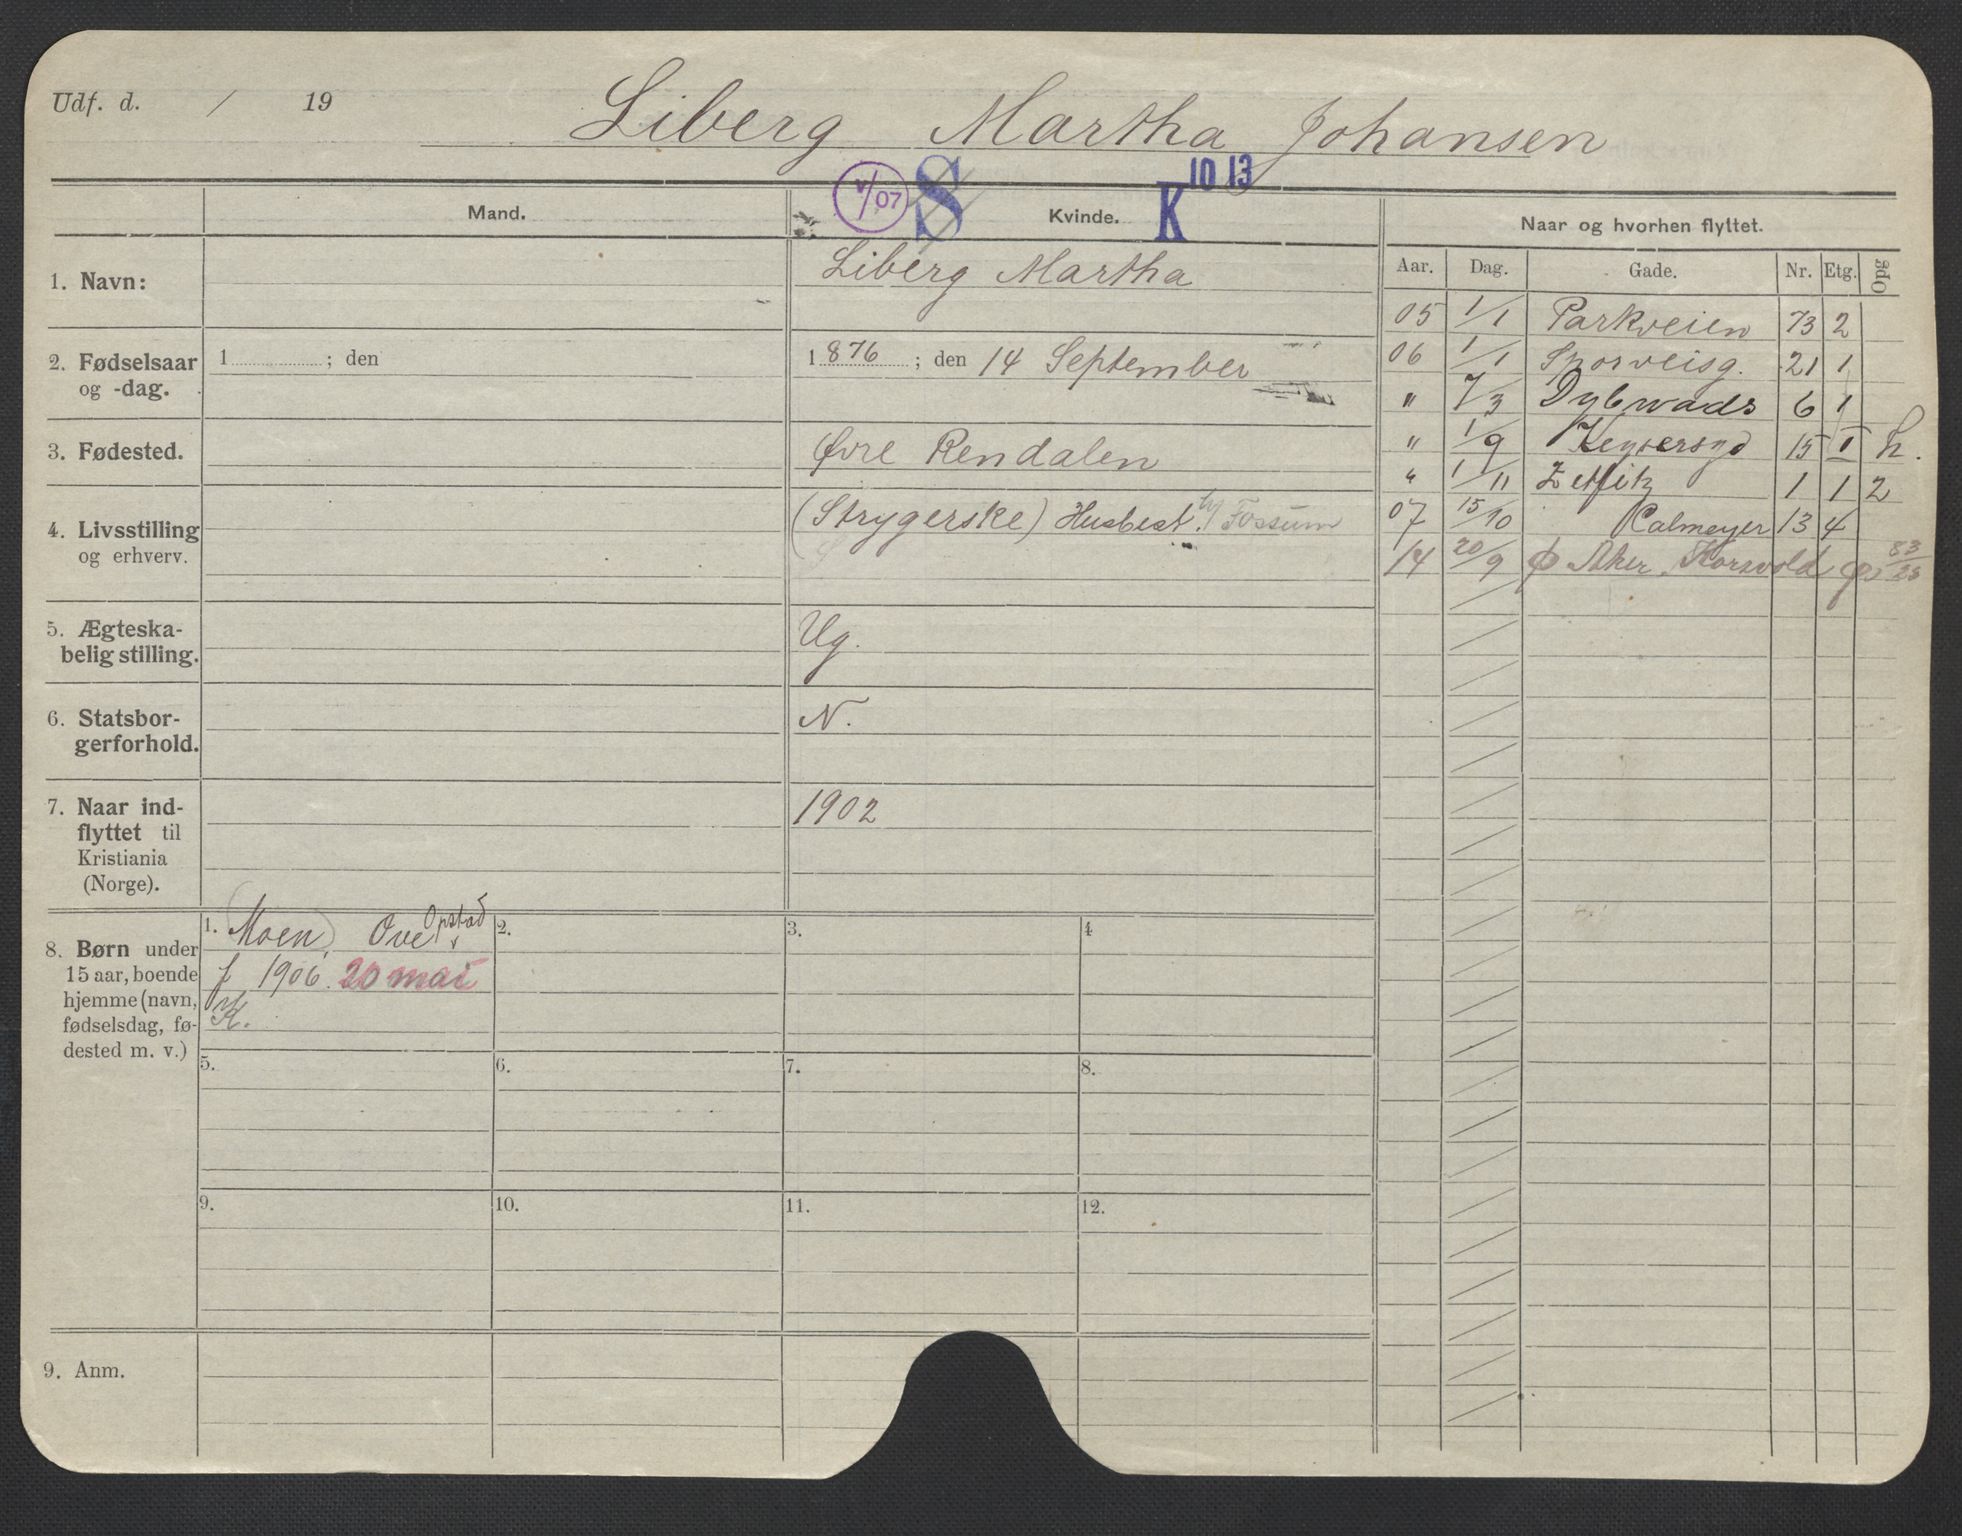 Udf. d. / 19
Liberg Martha Johansen
V/07 S K 10 13
Mand. Kvinde. Naar og hvorhen flyttet.
Aar. Dag. Gade. Nr. Etg. Opg
1. Navn:
Liberg Martha
2. Fødselsaar og -dag.
1 ; den
1876 ; den 14 September
3. Fødested.
Øvre Rendalen
4. Livsstilling og erhverv.
(Strygerske) Husbest. Fossum
5. Ægteska-
belig stilling.
Ug.
6. Statsbor-
gerforhold.
N.
7. Naar ind-
flyttet til
Kristiania
(Norge).
1902
05 1/1 Parkveien 73 2
06 1/1 Sporveisg. 21 1
" 7/3 Dybwads 6 1
" 1/9 Keysersgd 15 I h.
" 1/11 Zetlitz 1 1 2
07 15/10 Calmeyer 13 4
14 20/9 Aker Korsvold 83/25
8. Børn under
15 aar, boende
hjemme (navn,
fødselsdag, fø-
dested m. v.)
1. (Moen) Ove Opstad
f 1906. 20 mai
K.
2.
3.
4
5.
6.
7.
8.
9.
10.
11.
12.
9. Anm.